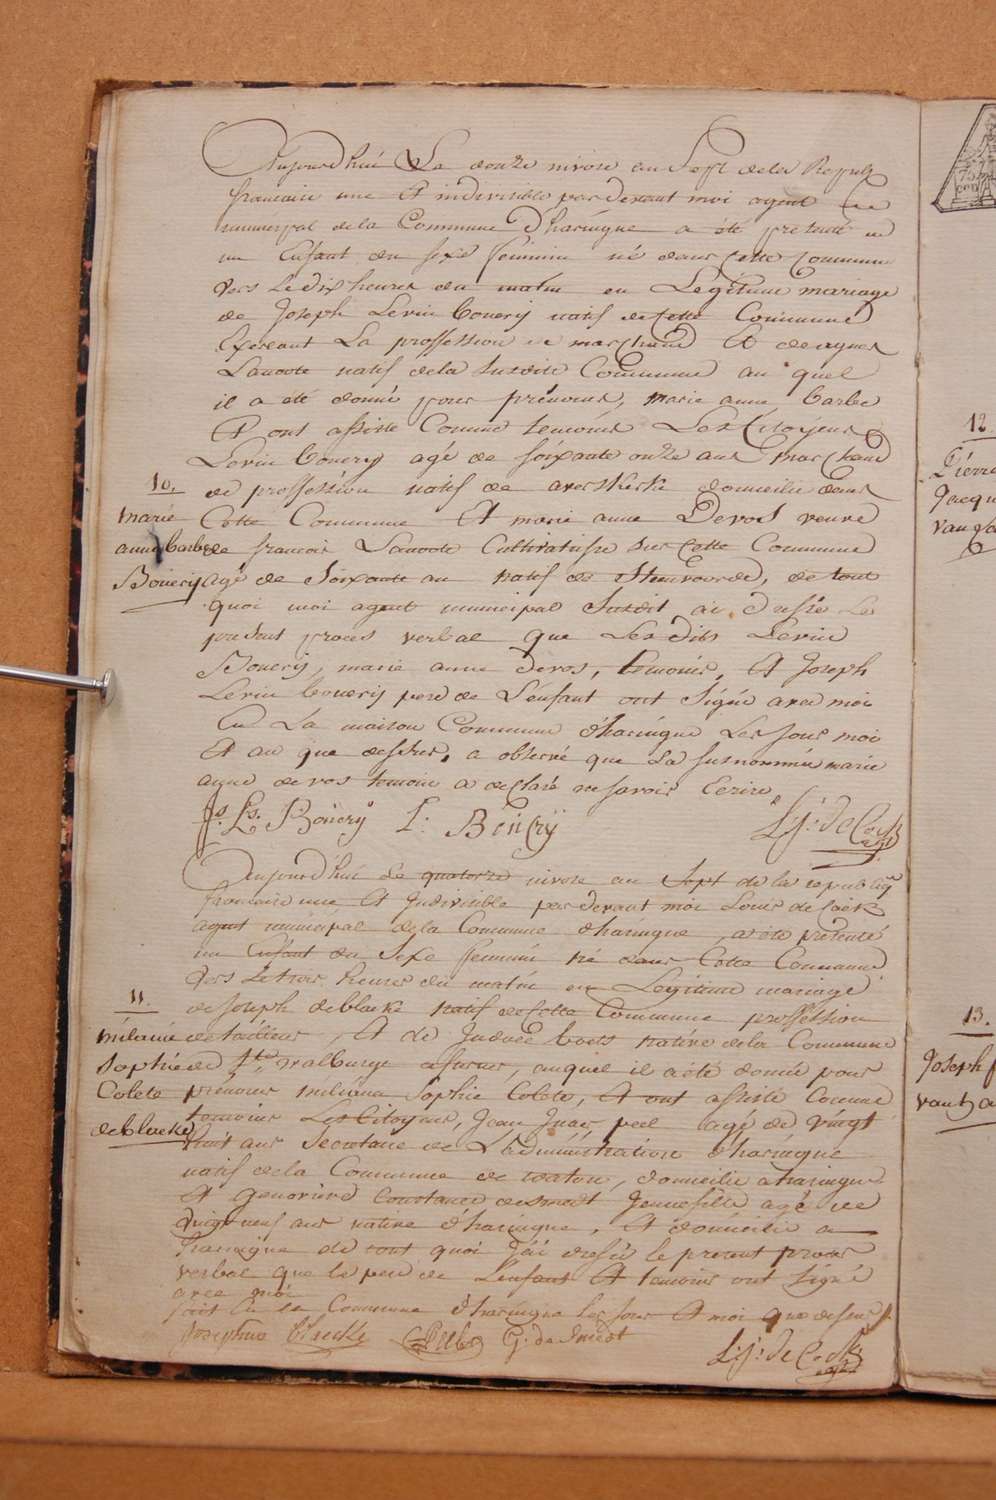 Aujourdhui Le douze nivose an Sept de la Republ
francaise une Et indivisible pardevant moi agent
municipal dela Commune d'haringue a été presenté
un Enfant du sexe feminin né dans Cette Commune
vers Le dix heures du matin en Legitime mariage
de Joseph Levin Bouery natif de Cette Commune
Exercant La proffession de marchand Et de agnes
Lanoote natif dela Susdite Commune au quel
il a été donné pour prénoms, marie anne barbe
Et ont assisté Comme temoins Les Citoyens
Levin Bouery agé de soixante onze ans marchand
10.
marie
anne barbe
Bouery
de proffession natif de domicilié dans
Cette Commune Et marie anne Devos veuve
de francois Lanoote Cultivatrisse sur Cette Commune
agé de Soixante an natif de Steenvoorde, de tout
quoi moi agent municipal Susdit ai Dressé Le
present proces verbal que Les dits Levin
Bouery, marie anne devos, temoins, Et Joseph
Levin Bouery pere de L'enfant ont signé avec moi
En La maison Commune d'haringue Les jour moi
Et an que dessus, a observé que La susnommée marie
anne de vos temoin a declaré ne savoir Ecrire
Js. Ls. Bouery L: Bouery L:J: de Cock
agt
Aujourd'hui Le quatorze nivose an Sept de la republiq
francaise une Et Indivisible pardevant moi Louis de Cock
agent municipal dela Commune d'haringue, a été presenté
un Enfant du Sexe feminin né dans Cette Commune
vers Le trois heures du matin en Legitime mariage
11.
mélanie
Sophie
Colete
deblaeke
de Joseph deblaeke natif de Cette Commune proffession
de tailleur, Et de Judoca boets native dela Commune
de Ste. walburge a furnes, auquel il a été donné pour
prénoms mélanie Sophie Colete, Et ont assisté Comme
temoins Les Citoyens, Jean agé de vingt
huit ans Secretaire de L'administration d'haringue
natif dela Commune de watou, domicilié a haringue
Et Genevieve Constance desmedt Jeune fille agé de
vingt neuf ans native d'haringue, Et domicilié a
haringue de tout quoi J'ai dressé le present proces
verbal que le pere de L'enfant Et temoins ont Signé
avec moi
fait En la Commune d'haringue les jour Et moi que dessus
Josephus blaeke G. de Smedt L:J: de Cock
agt
12.
Pierre
Jacqu
13.
Joseph